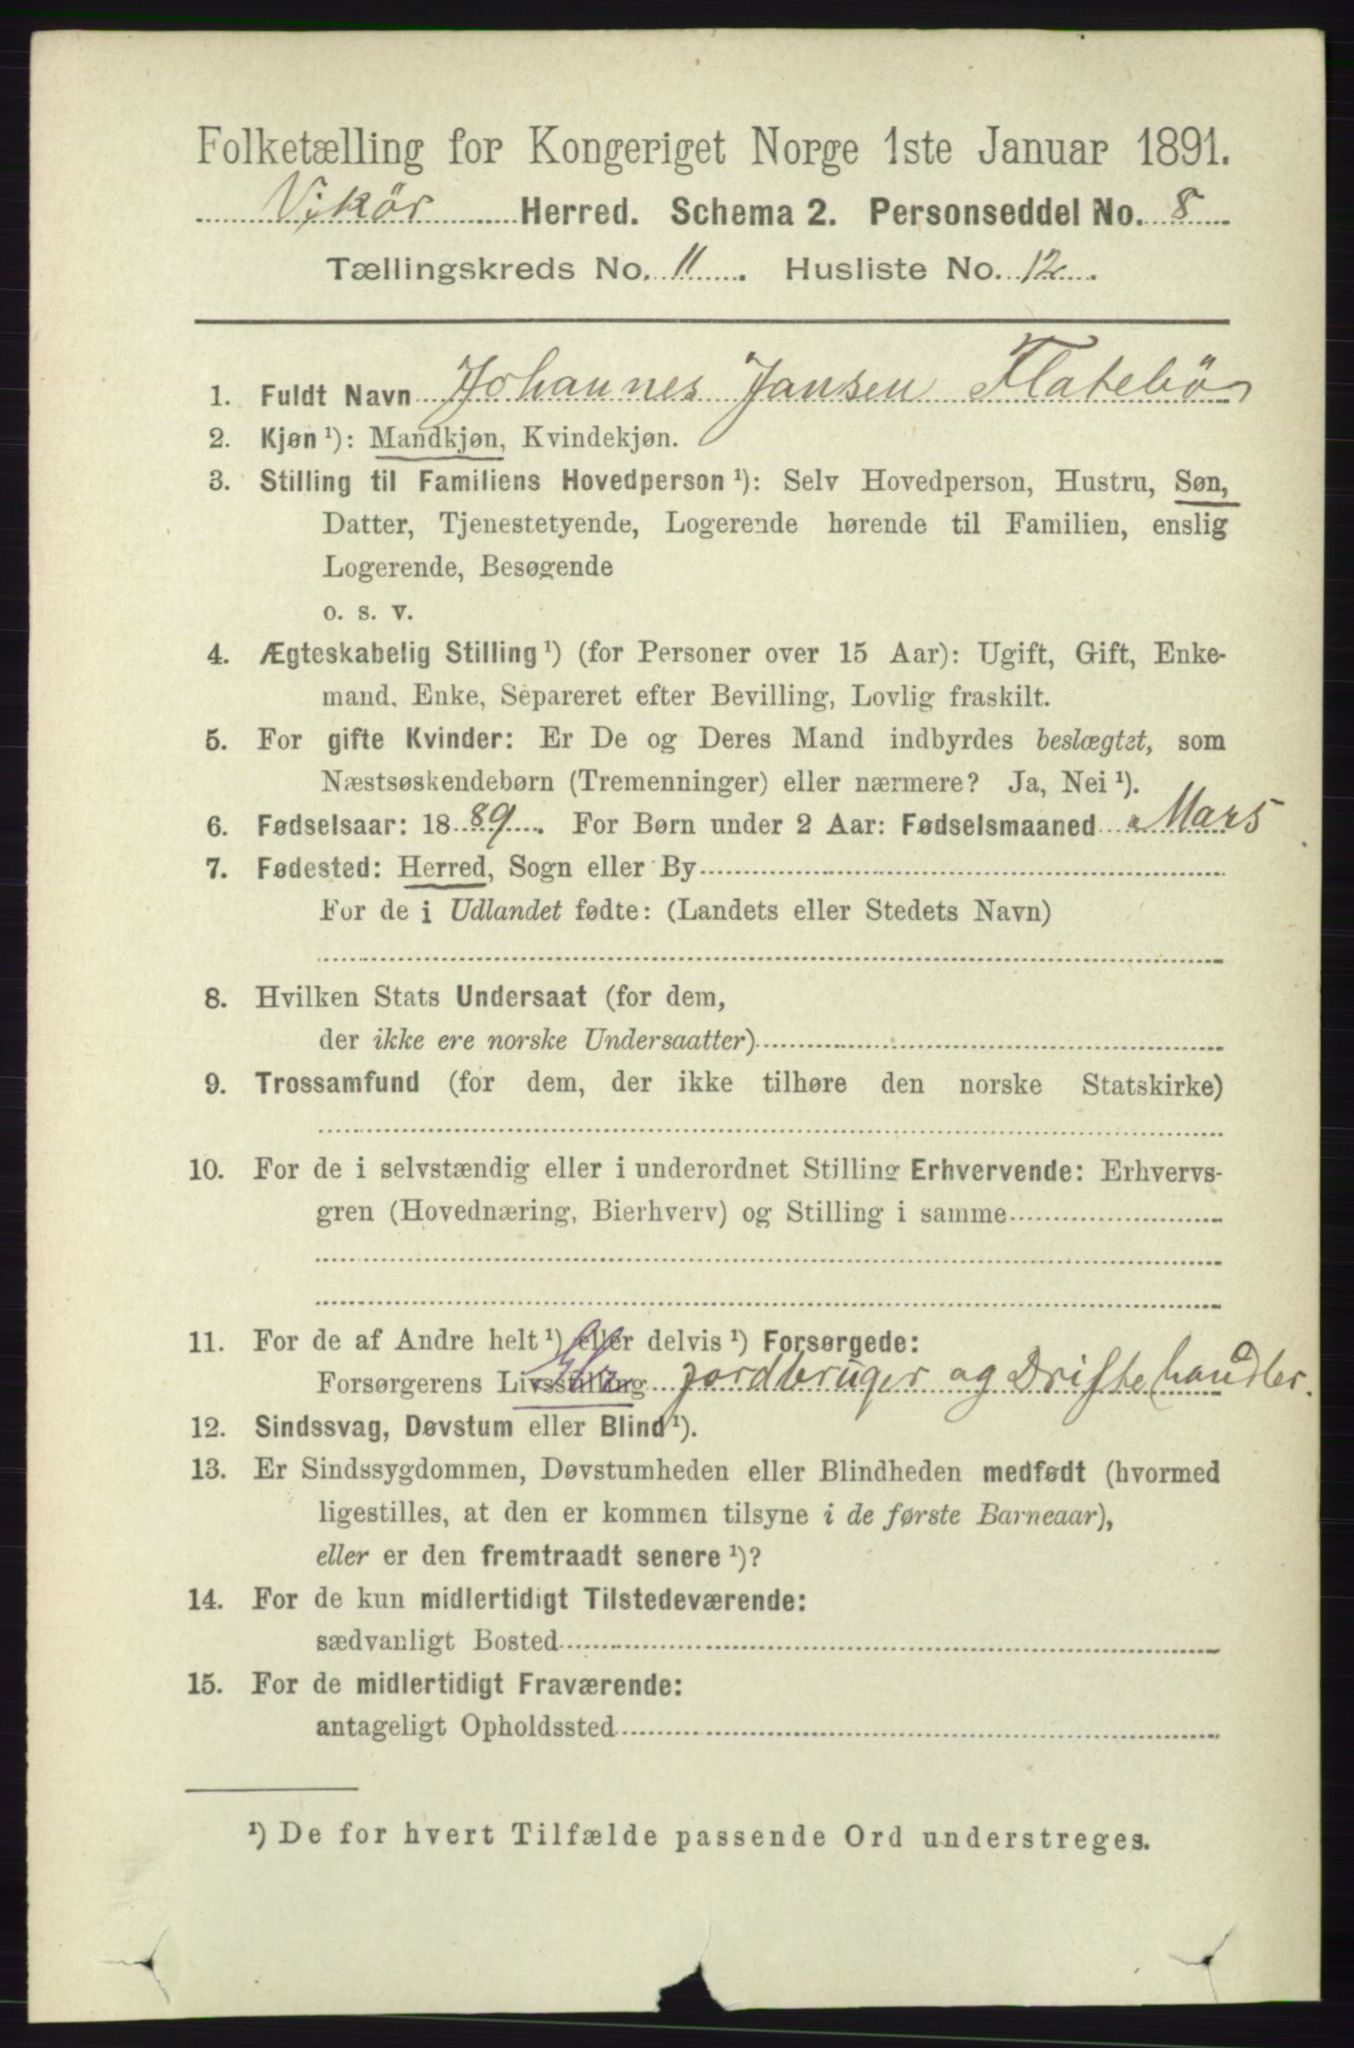 Folketælling for Kongeriget Norge 1ste Januar 1891.
Vikör Herred. Schema 2. Personseddel No. 8
Tællingskreds No. 11. Husliste No. 12.
1. Fuldt Navn Johannes Jansen Flatebö
2. Kjøn ¹): Mandkjøn, Kvindekjøn.
3. Stilling til Familiens Hovedperson ¹): Selv Hovedperson, Hustru, Søn,
Datter, Tjenestetyende, Logerende hørende til Familien, enslig
Logerende, Besøgende
o. s. v.
4. Ægteskabelig Stilling ¹) (for Personer over 15 Aar): Ugift, Gift, Enke-
mand, Enke, Separeret efter Bevilling, Lovlig fraskilt.
5. For gifte Kvinder: Er De og Deres Mand indbyrdes beslægtet, som
Næstsøskendebørn (Tremenninger) eller nærmere? Ja, Nei ¹).
6. Fødselsaar: 1889. For Børn under 2 Aar: Fødselsmaaned Mars
7. Fødested: Herred, Sogn eller By
For de i Udlandet fødte: (Landets eller Stedets Navn)
8. Hvilken Stats Undersaat (for dem,
der ikke ere norske Undersaatter)
9. Trossamfund (for dem, der ikke tilhøre den norske Statskirke)
10. For de i selvstændig eller i underordnet Stilling Erhvervende: Erhvervs-
gren (Hovednæring, Bierhverv) og Stilling i samme
11. For de af Andre helt ¹) eller delvis ¹) Forsørgede:
Forsørgerens Livsstilling jordbruger og Driftehandler.
12. Sindssvag, Døvstum eller Blind ¹).
13. Er Sindssygdommen, Døvstumheden eller Blindheden medfødt (hvormed
ligestilles, at den er kommen tilsyne i de første Barneaar),
eller er den fremtraadt senere ¹)?
14. For de kun midlertidigt Tilstedeværende:
sædvanligt Bosted
15. For de midlertidigt Fraværende:
antageligt Opholdssted
¹) De for hvert Tilfælde passende Ord understreges.